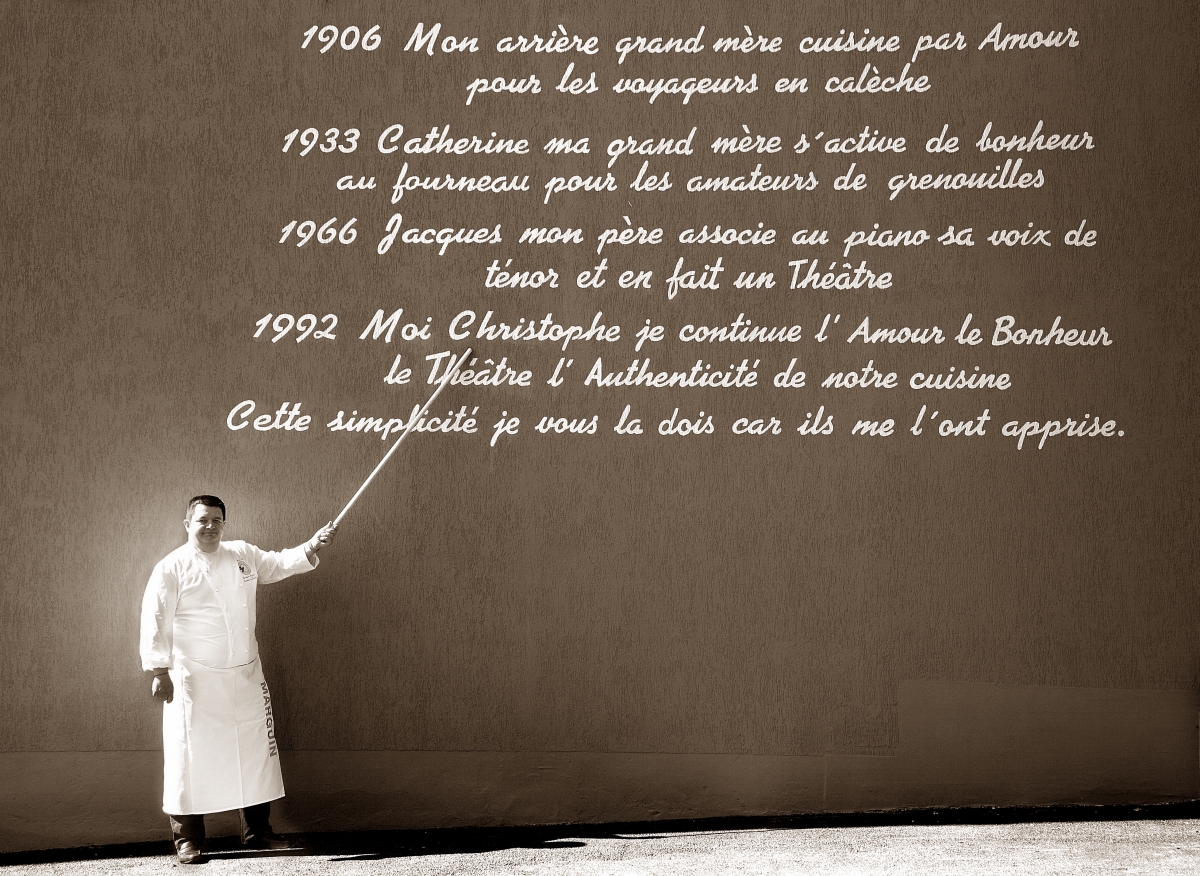 1906 Mon arrière grand mère cuisine par Amour
pour les voyageurs en calèche
1933 Catherine ma grand mère s'active de bonheur
au fourneau pour les amateurs de grenouilles
1966 Jacques mon père associe au piano sa voix de
ténor et en fait un Théâtre
1992 Moi Christophe je continue l' Amour le Bonheur
le Théâtre l' Authenticité de notre cuisine
Cette simplicité je vous la dois car ils me l'ont apprise.
MARGUIN